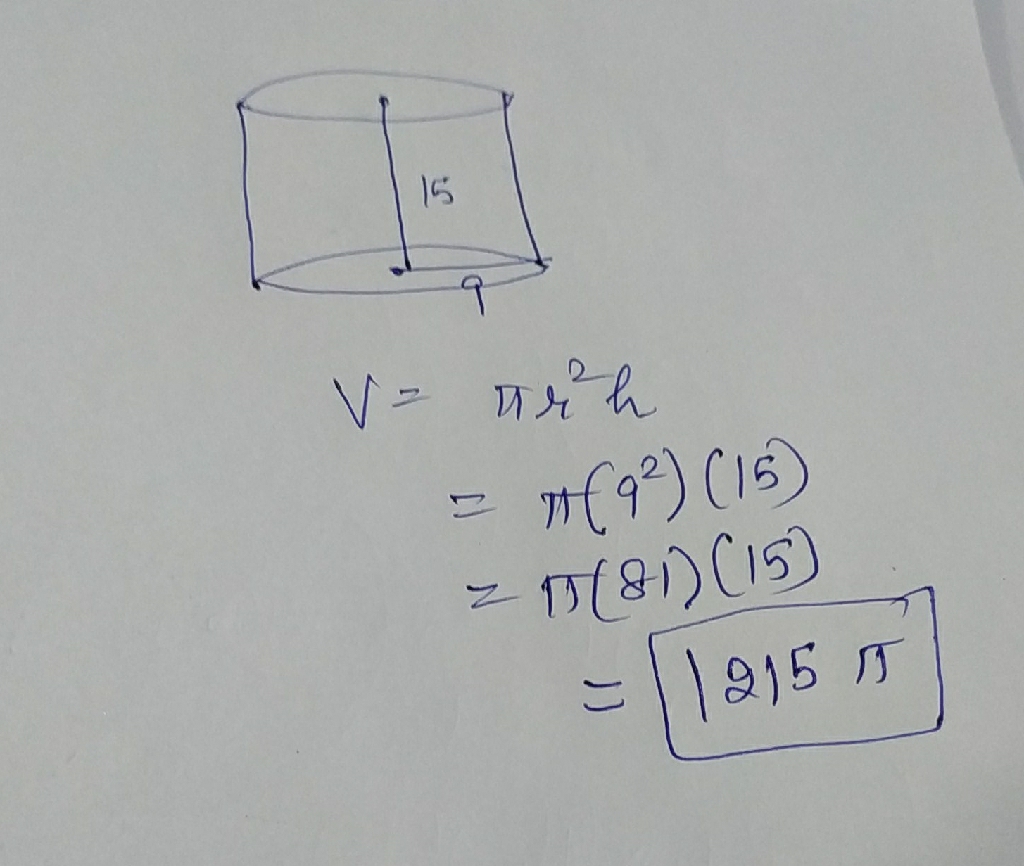 15
9
V = πr²h
= π(9²)(15)
= π(81)(15)
= 1215 π